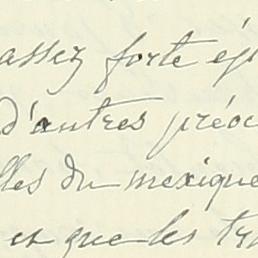 assez forte ép
d'autres préoc
lles du mexique
et que les tr